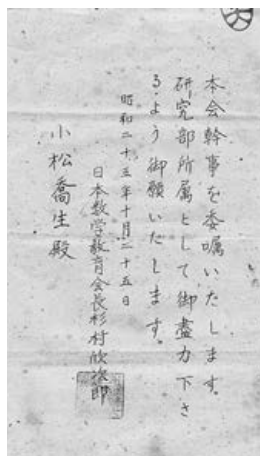 本会幹事を委嘱いたします。
研究部所属として御盡力下さ
るよう御願いたします。
昭和二十五年十月二十五日
日本数学教育会長杉村欣次郎
小松喬生殿